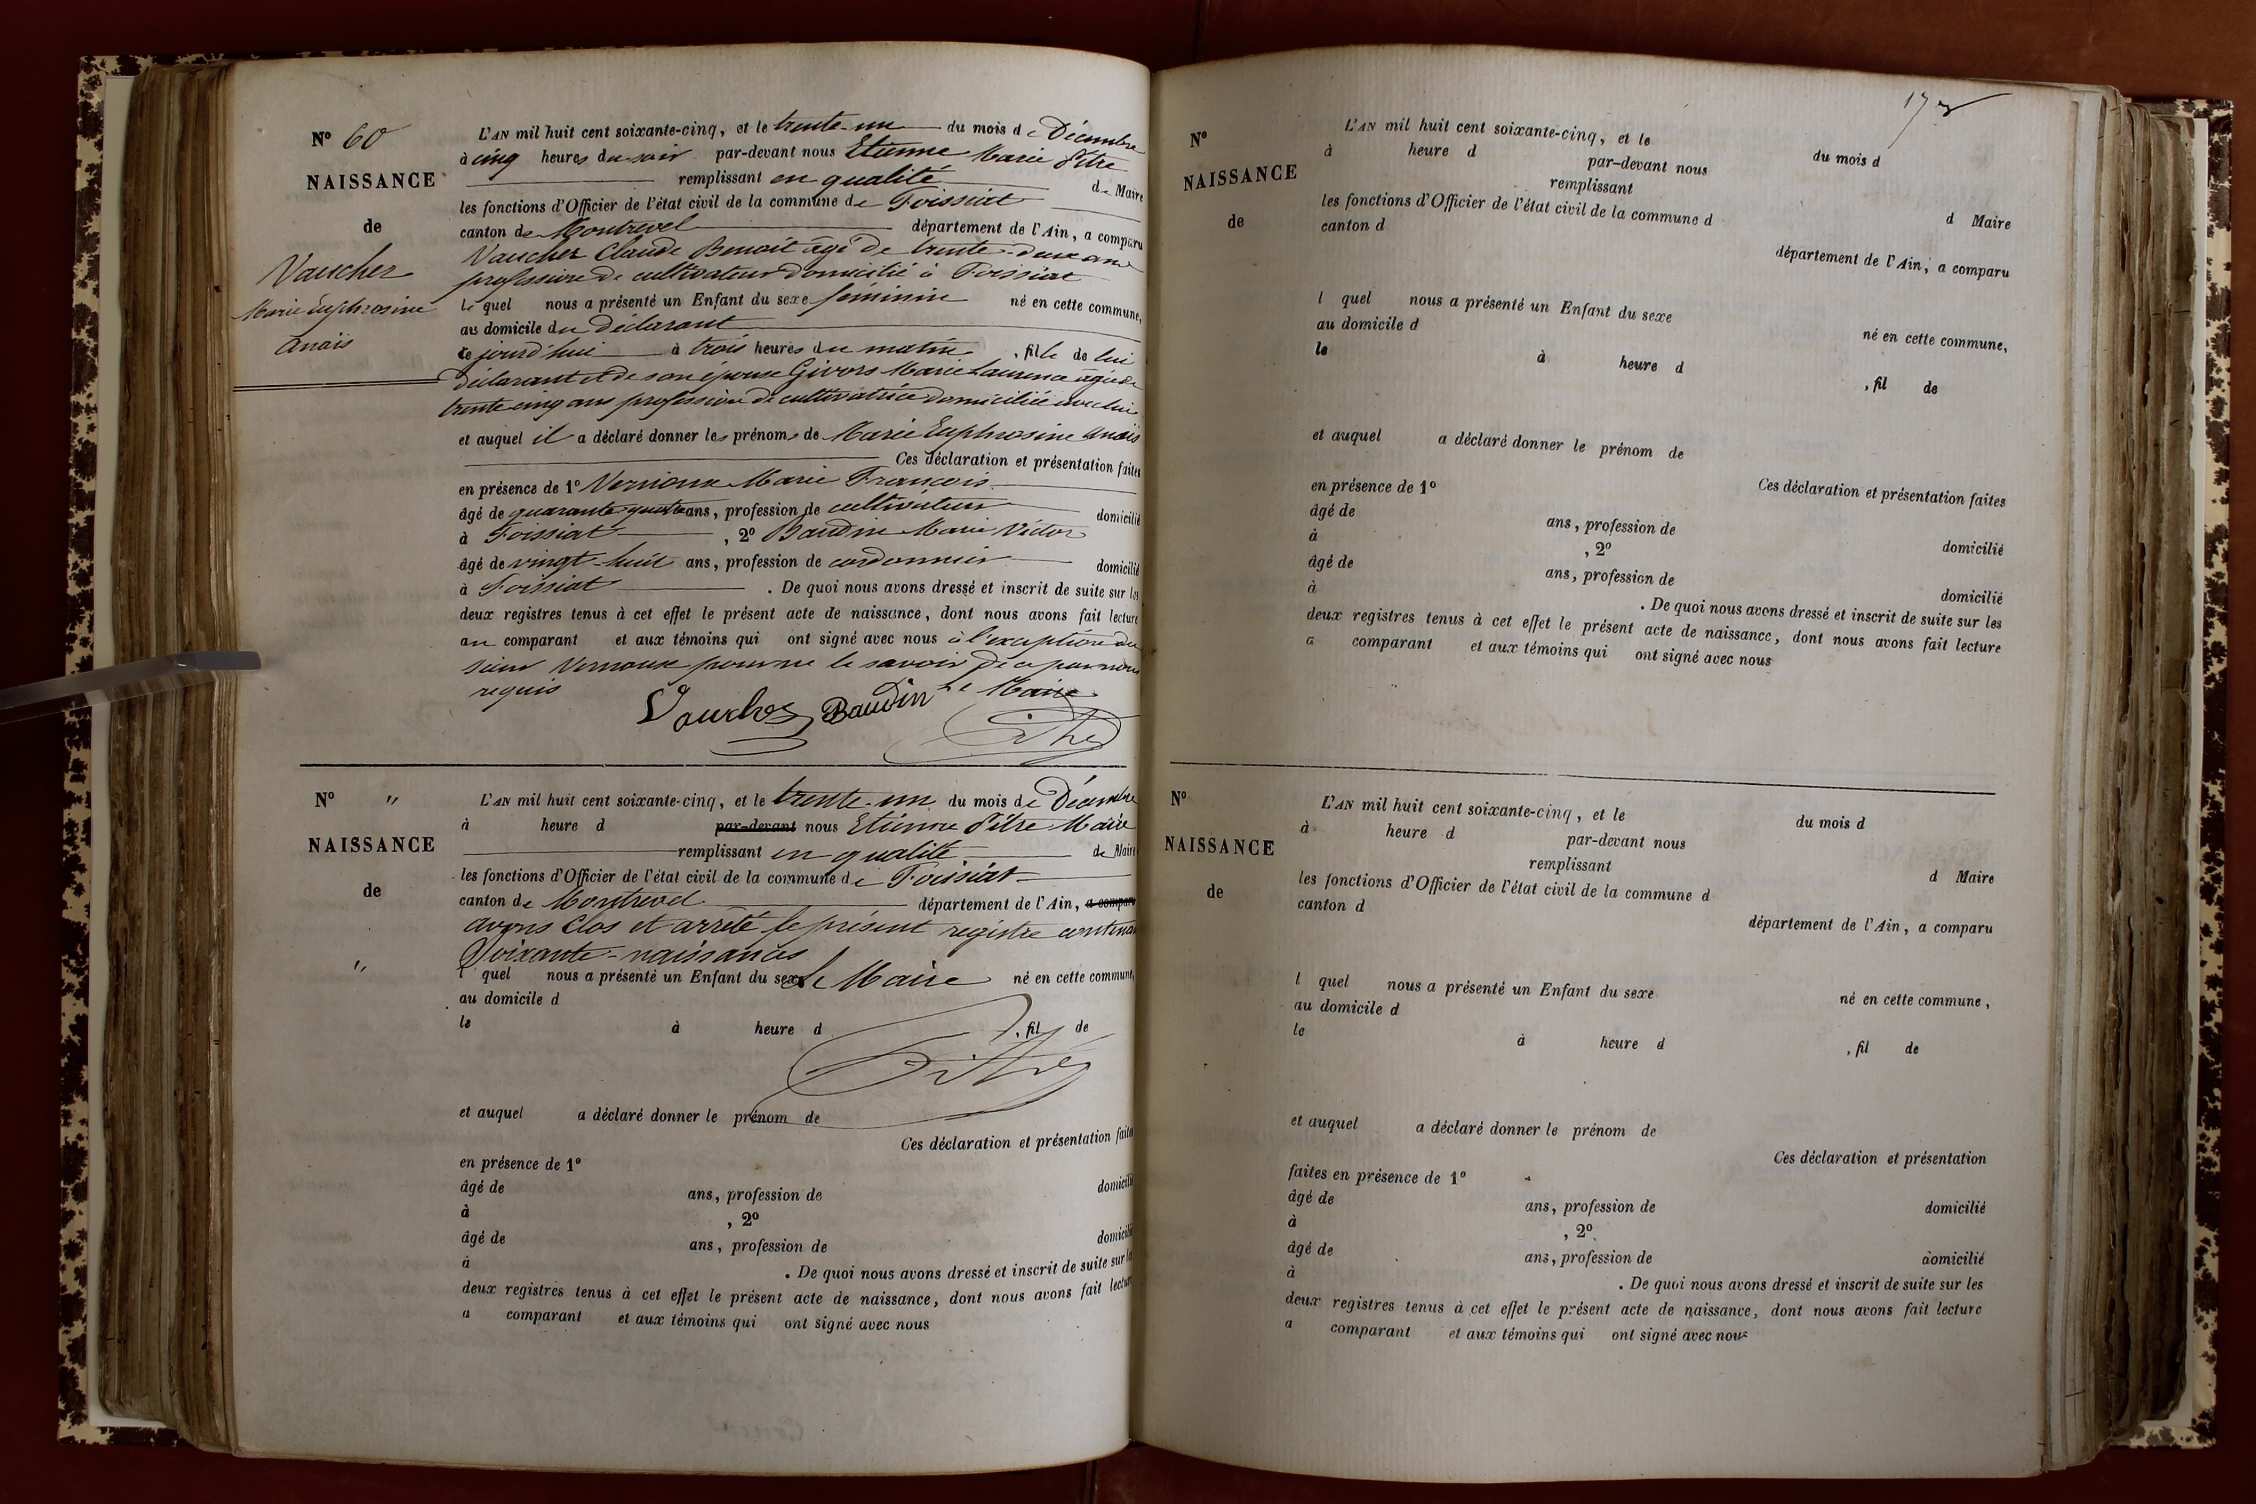 N° 60
NAISSANCE
de
Vaucher
Marie Euphrosine
Anaïs
L'AN mil huit cent soixante-cinq, et le trente-un du mois de Décembre
à cinq heures du soir par-devant nous Etienne Marie Pitre
remplissant en qualité de Maire
les fonctions d'Officier de l'état civil de la commune de Foissiat
canton de Montrevel département de l'Ain, a comparu
Vaucher Claude Benoit âgé de trente-deux ans
profession de cultivateur domicilié à Foissiat
le quel nous a présenté un Enfant du sexe féminin né en cette commune,
au domicile du déclarant
ce jourd'hui à trois heures du matin, fille de lui
déclarant et de son épouse Givors Marie Laurence âgée de
trente cinq ans profession de cultivatrice domiciliée avec lui
et auquel il a déclaré donner les prénoms de Marie Euphrosine Anaïs
Ces déclaration et présentation faites
en présence de 1° Vernoux Marie François
âgé de quarante quatre ans, profession de cultivateur domicilié
à Foissiat, 2° Baudin Marie Victor
âgé de vingt-huit ans, profession de cordonnier domicilié
à Foissiat. De quoi nous avons dressé et inscrit de suite sur les
deux registres tenus à cet effet le présent acte de naissance, dont nous avons fait lecture
au comparant et aux témoins qui ont signé avec nous à l'exception du
sieur Vernoux pour ne le savoir de ce par nous
requis
Le Maire
Vaucher Baudin
Pitre
N° "
NAISSANCE
de
"
L'AN mil huit cent soixante-cinq, et le trente-un du mois de Décembre
à heure d par-devant nous Etienne Pitre Maire
remplissant en qualité de Maire
les fonctions d'Officier de l'état civil de la commune de Foissiat
canton de Montrevel département de l'Ain, a comparu
avons clos et arrêté le présent registre contenant
Soixante-naissances
l quel nous a présenté un Enfant du sexe Le Maire né en cette commune,
au domicile d
le à heure d , fil de
Pitre
et auquel a déclaré donner le prénom de
Ces déclaration et présentation faites
en présence de 1°
âgé de ans, profession de domicilié
à , 2°
âgé de ans, profession de domicilié
à . De quoi nous avons dressé et inscrit de suite sur les
deux registres tenus à cet effet le présent acte de naissance, dont nous avons fait lecture
a comparant et aux témoins qui ont signé avec nous
N°
NAISSANCE
de
L'AN mil huit cent soixante-cinq, et le du mois d
à heure d par-devant nous
remplissant d Maire
les fonctions d'Officier de l'état civil de la commune d
canton d département de l'Ain, a comparu
l quel nous a présenté un Enfant du sexe né en cette commune,
au domicile d
le à heure d , fil de
et auquel a déclaré donner le prénom de
Ces déclaration et présentation faites
en présence de 1°
âgé de ans, profession de domicilié
à , 2°
âgé de ans, profession de domicilié
à . De quoi nous avons dressé et inscrit de suite sur les
deux registres tenus à cet effet le présent acte de naissance, dont nous avons fait lecture
a comparant et aux témoins qui ont signé avec nous
N°
NAISSANCE
de
L'AN mil huit cent soixante-cinq, et le du mois d
à heure d par-devant nous
remplissant d Maire
les fonctions d'Officier de l'état civil de la commune d
canton d département de l'Ain, a comparu
l quel nous a présenté un Enfant du sexe né en cette commune,
au domicile d
le à heure d , fil de
et auquel a déclaré donner le prénom de
Ces déclaration et présentation
faites en présence de 1°
âgé de ans, profession de domicilié
à , 2°
âgé de ans, profession de domicilié
à . De quoi nous avons dressé et inscrit de suite sur les
deux registres tenus à cet effet le présent acte de naissance, dont nous avons fait lecture
a comparant et aux témoins qui ont signé avec nous